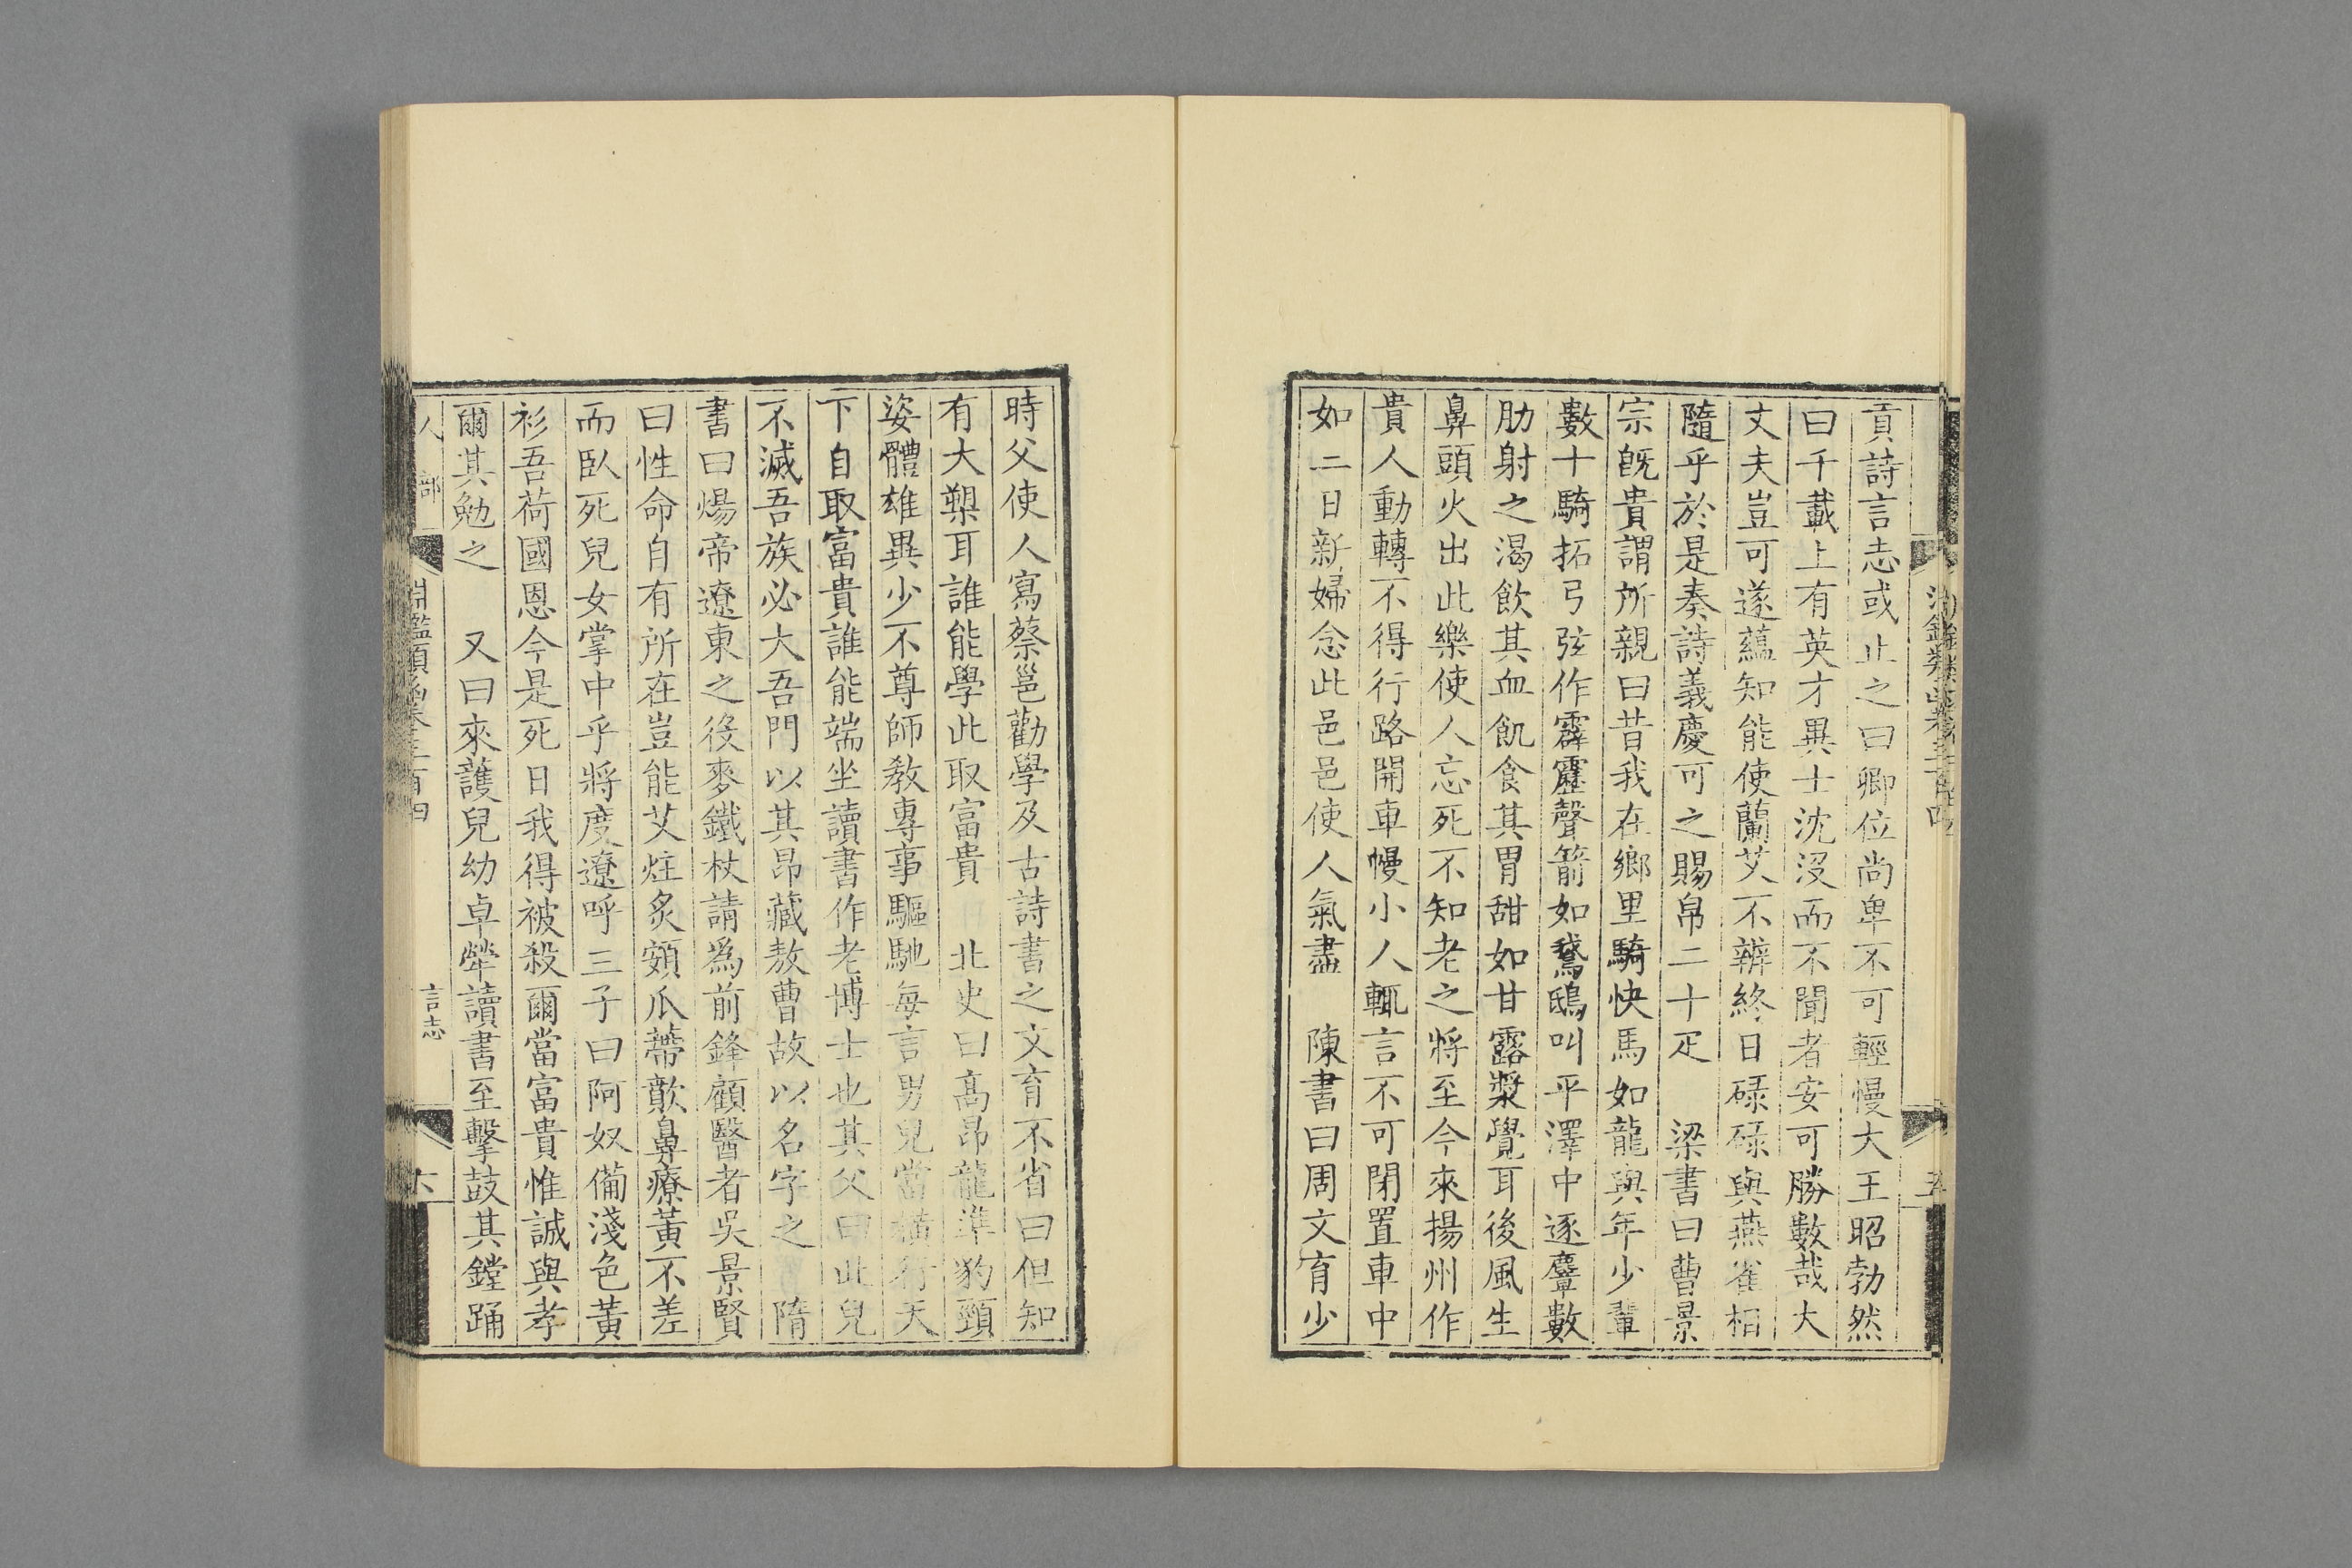 貢詩言志或止之曰卿位尚卑不可輕慢大王昭勃然
曰千載上有英才異士沈沒而不聞者安可勝數哉大
丈夫豈可遂蘊知能使蘭艾不辨終日碌碌與燕雀相
隨乎於是奏詩義慶可之賜帛二十疋　梁書曰曹景
宗旣貴謂所親曰昔我在鄉里騎快馬如龍與年少輩
數十騎拓弓弦作霹靂聲箭如鵞鴟叫平澤中逐麞數
肋射之渴飲其血飢食其胃甜如甘露漿覺耳後風生
鼻頭火出此樂使人忘死不知老之將至今來揚州作
貴人動轉不得行路開車幔小人輒言不可閉置車中
如二日新婦念此邑邑使人氣盡　陳書曰周文育少
時父使人寫蔡邕勸學及古詩書之文育不省曰但知
有大槊耳誰能學此取富貴　北史曰高昂龍準豹頸
姿體雄異少不尊師敎專事驅馳每言男兒當橫行天
下自取富貴誰能端坐讀書作老博士也其父曰此兒
不滅吾族必大吾門以其昂藏敖曹故以名字之　隋
書曰煬帝遼東之役麥鐵杖請爲前鋒顧醫者吳景賢
曰性命自有所在豈能艾炷炙頞瓜蔕歕鼻療黃不差
而臥死兒女掌中乎將度遼呼三子曰阿奴備淺色黃
衫吾荷國恩今是死日我得被殺爾當富貴惟誠與孝
爾其勉之　又曰來護兒幼卓犖讀書至擊鼓其鏜踊
人部
淵鑑類函卷三百四
言志
六